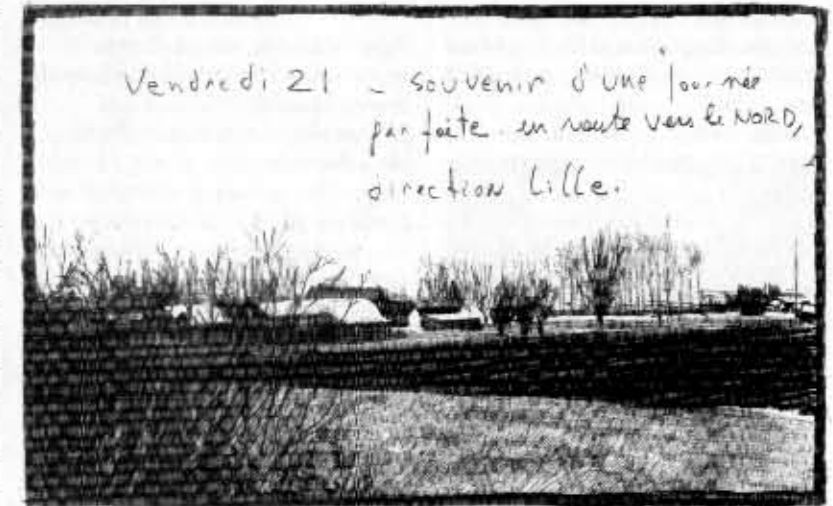 Vendredi 21 - souvenir d'une journée
parfaite. en route vers le NORD,
direction Lille.